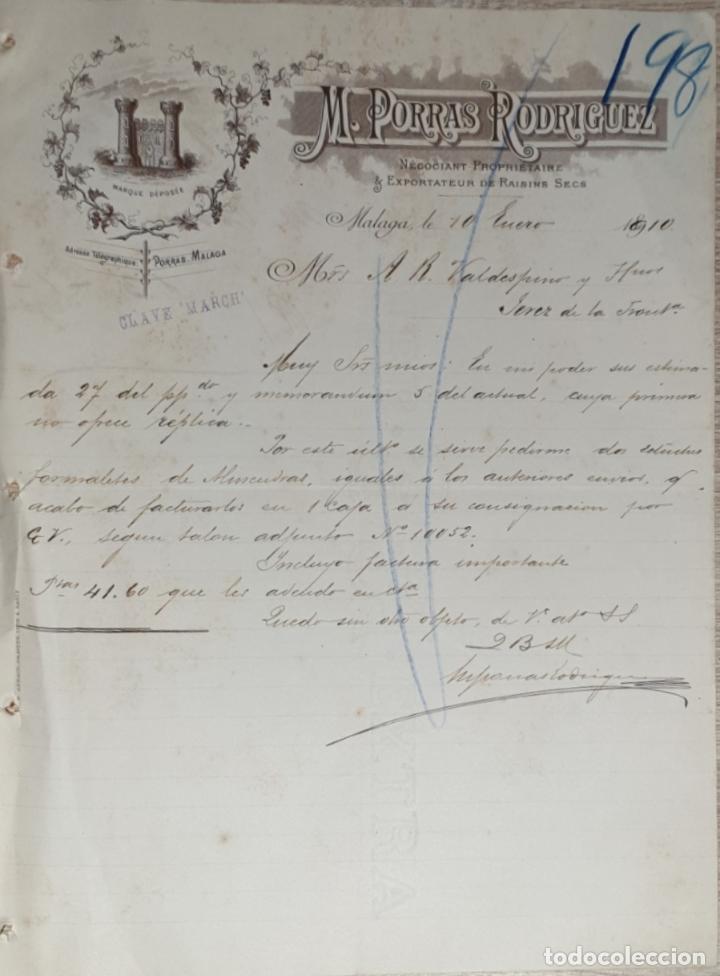 198
M. PORRAS RODRIGUEZ
NÉGOCIANT PROPRIÉTAIRE
& EXPORTATEUR DE RAISINS SECS
MARQUE DÉPOSÉE
Adresse Télégraphique PORRAS. MALAGA
CLAVE "MARCH"
Malaga, le 10 Enero 1910
Mrs A R. Valdespino y Hnos
Jerez de la Fronta
Muy Srs mios: En mi poder sus estima-
da 27 del ppdo y memorandum 5 del actual, cuya primera
no ofrece réplica.
Por este últo se sirve pedirme dos
de iguales á los anteriores envios, q
acabo de facturarlos en 1 caja a su consignacion por
G.V., segun talon adjunto No 10052.
Incluyo factura importante
Ptas 41.60 que les adeudo en cta
Quedo sin otro objeto, de V. ato SS
QBSM
MPorrasRodriguez
EXTRA
todocoleccion
todocoleccion.net